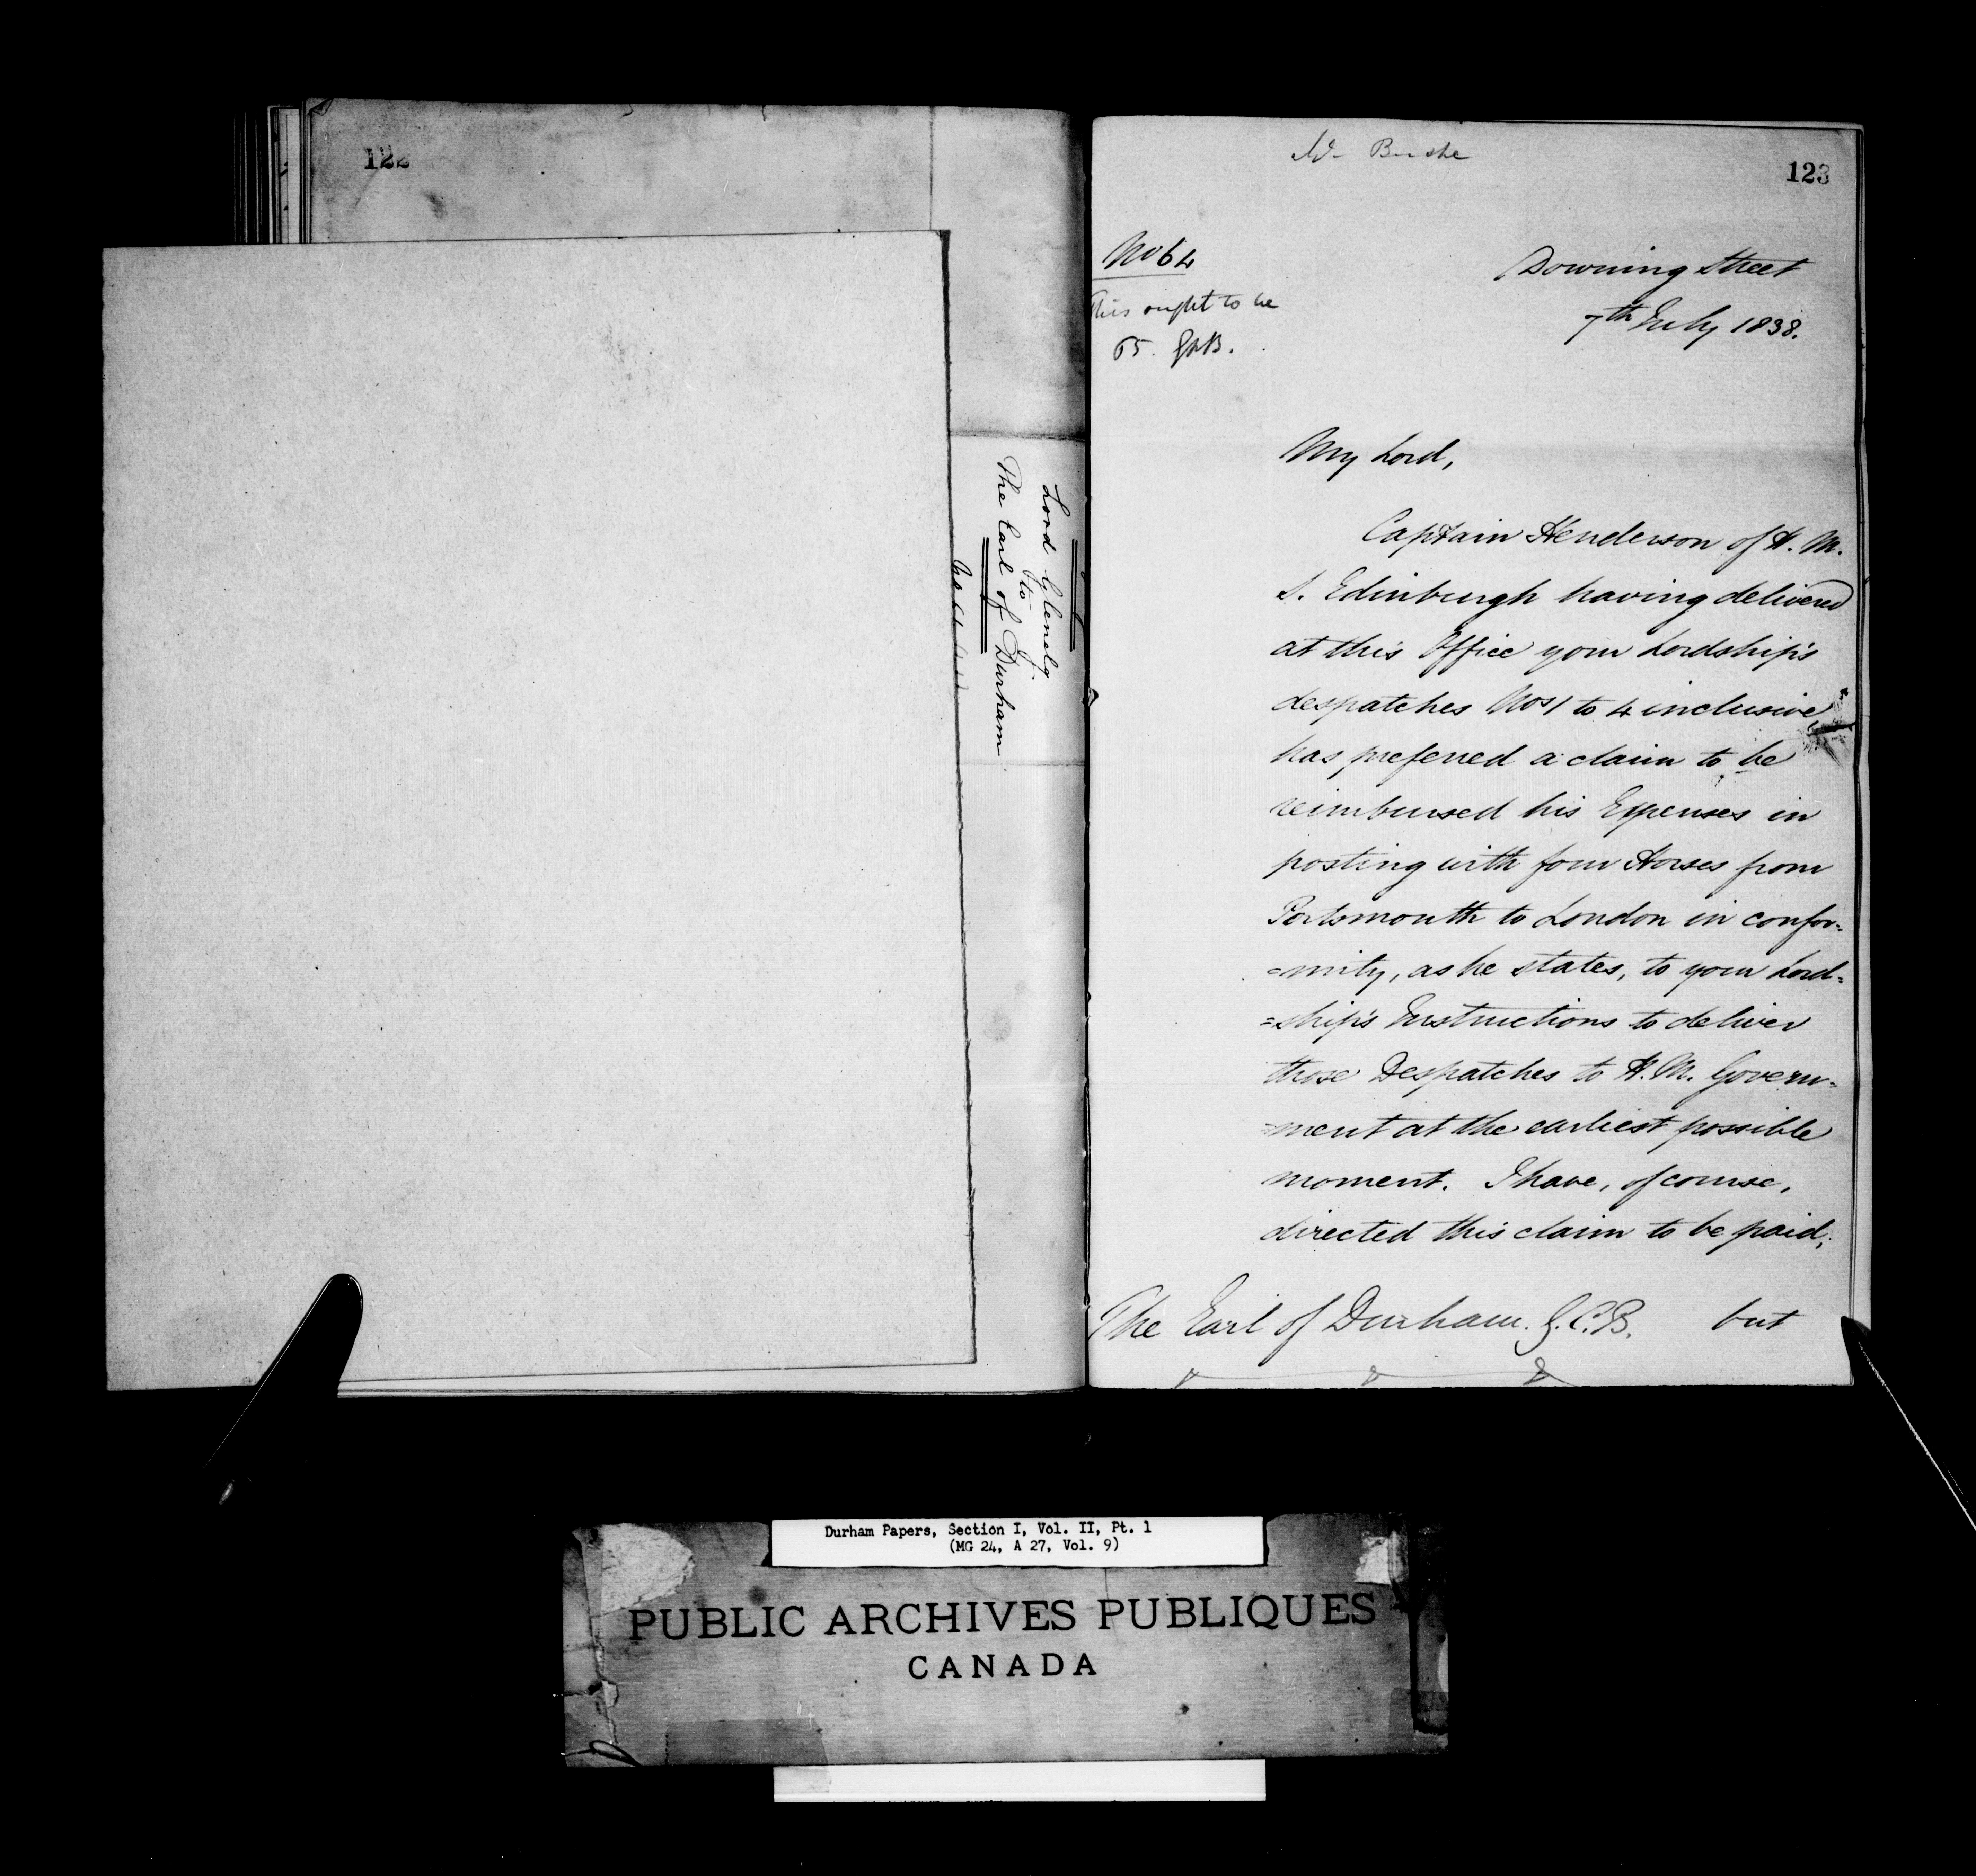 122
Lord Glenelg
to
The Earl of Durham
123
No 64
This ought to be
65.
Downing Street
7th July 1838.
My Lord,
Captain Henderson of H. M.
S. Edinburgh having delivered
at this Office your Lordship's
despatches Nos 1 to 4 inclusive,
has preferred a claim to be
reimbursed his Expenses in
posting with four Horses from
Portsmouth to London in confor=
=mity, as he states, to your Lord=
=ship's Instructions to deliver
those Despatches to H. M. Govern=
=ment at the earliest possible
moment. I have, of course,
directed this claim to be paid,
The Earl of Durham. G.C.B. but
Durham Papers, Section I, Vol. II, Pt. 1
(MG 24, A 27, Vol. 9)
PUBLIC ARCHIVES PUBLIQUES
CANADA